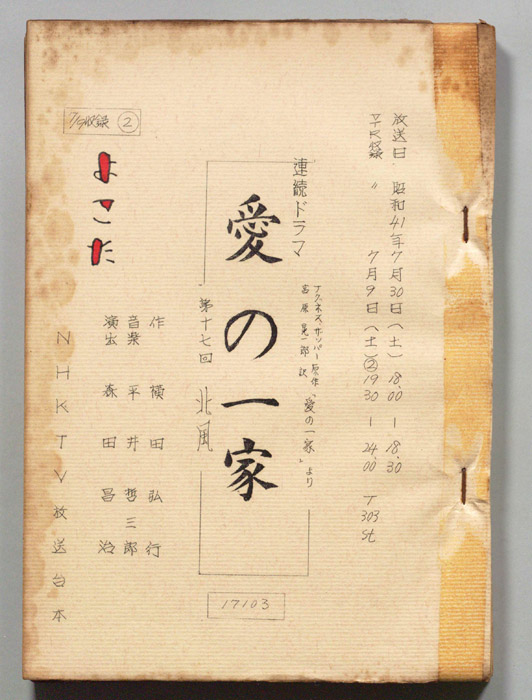 放送日 昭和41年7月30日(土) 18.00 — 18.30
VTR収録 〃 7月9日(土)② 19 30 — 24.00 T 303 st
連続ドラマ
アグネス・ザッパー原作「愛の一家」より
宮原晃一郎 訳
愛の一家
第十七回 北風
作 横田弘行
音楽 平井哲三郎
演出 森田昌治
NHKTV放送台本
7/9収録 ②
よこた
17103